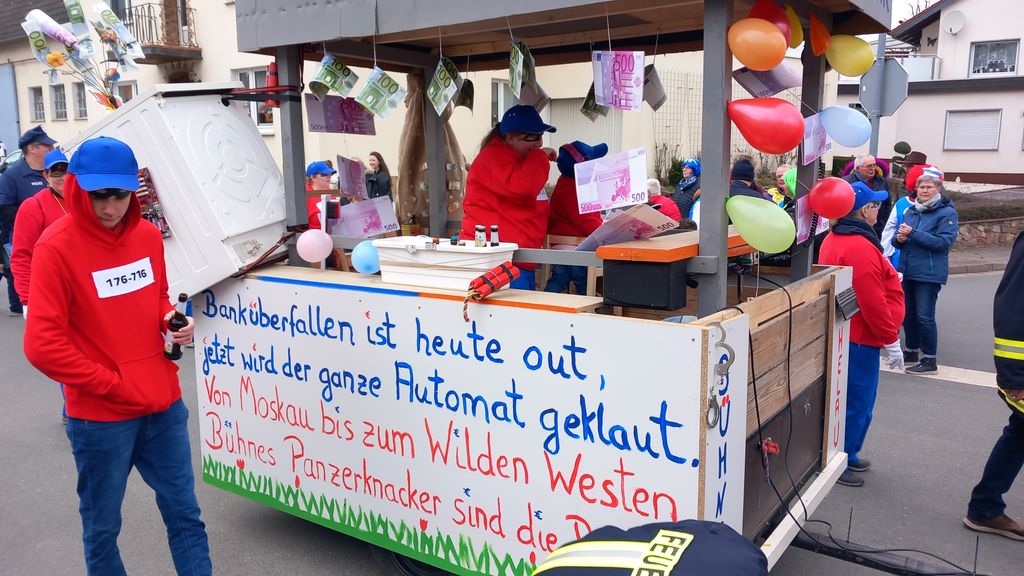 Banküberfallen ist heute out,
jetzt wird der ganze Automat geklaut.
Von Moskau bis zum Wilden Westen
Bühnes Panzerknacker sind die
BÜHN
176-716
FEUER
500
500
500
500
500
100
100
100